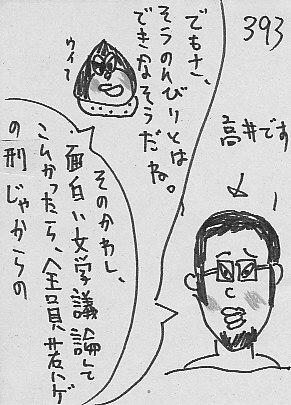 393
高井です
でもさ、
そうのんびりとは
できなそうだね。
ウィー
そのかわし、
面白い文学議論して
こんかったら、全員若ハゲ
の刑じゃからの